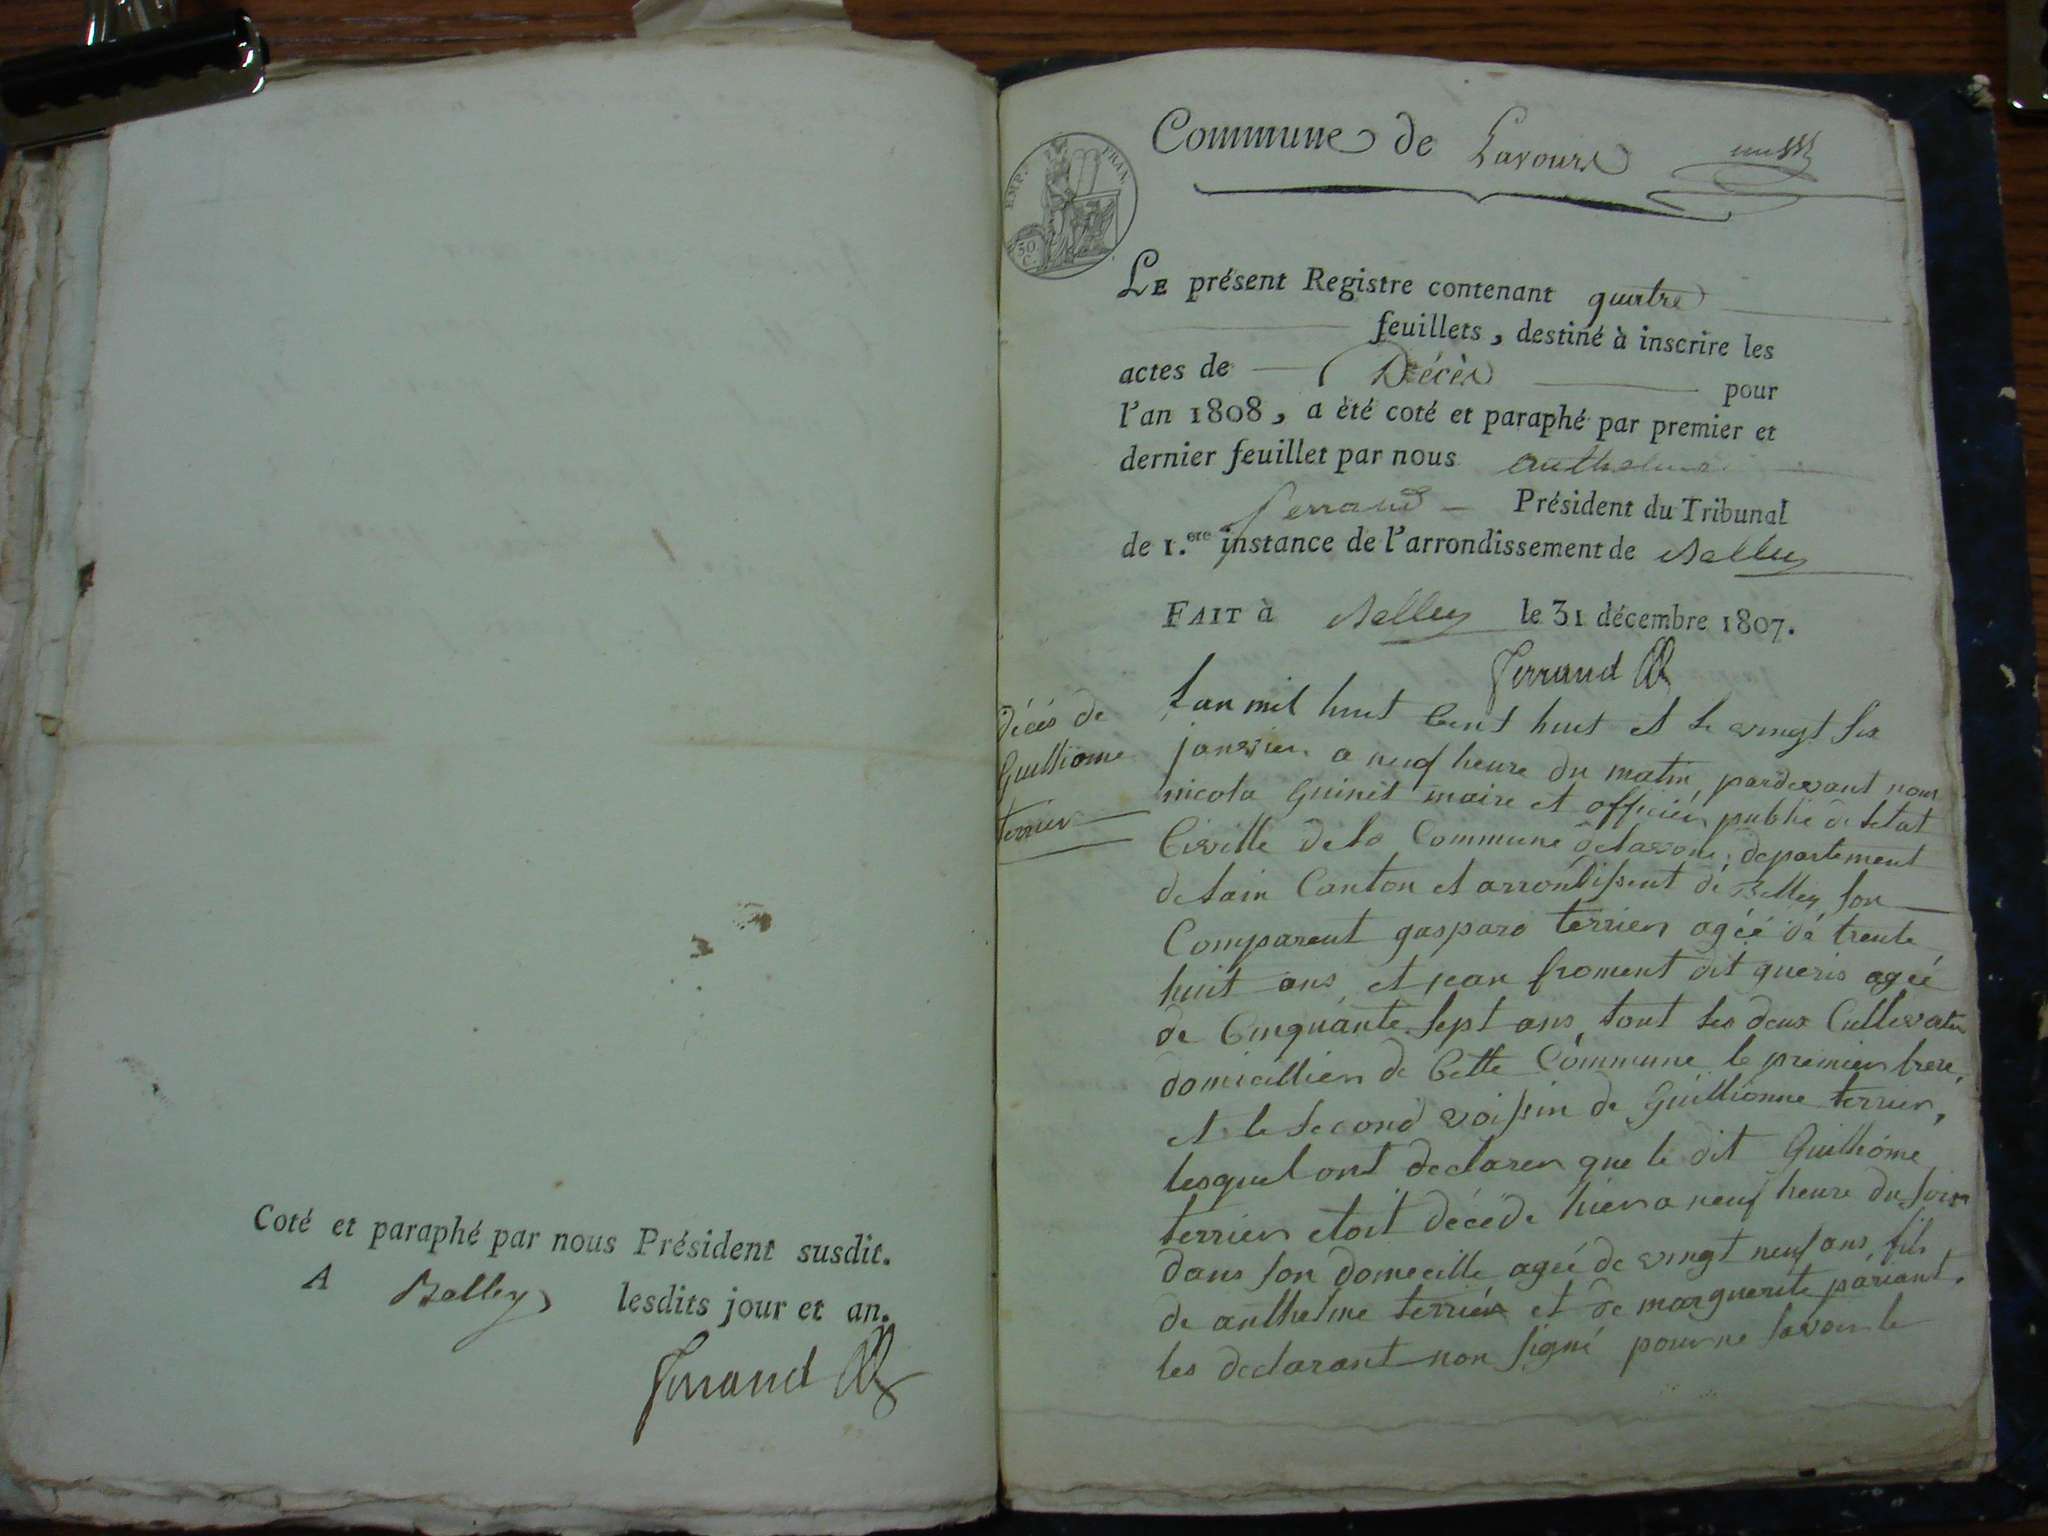 Coté et paraphé par nous Président susdit.
A Belley lesdits jour et an.
Ferrand
Commune de Lavours
EMP. FRAN.
50 C.
LE présent Registre contenant quatre
feuillets, destiné à inscrire les
actes de Décès pour
l'an 1808, a été coté et paraphé par premier et
dernier feuillet par nous anthelme
ferrand Président du Tribunal
de 1.ere instance de l'arrondissement de Belley
FAIT à Belley le 31 décembre 1807.
Ferrand
Décés de
Guillióme
terrier
Lan mil huit Cent huit et le vingt six
janvier a neuf heure du matin, pardevant nous
nicola Guinet maire et officiér public de letat
Civille de la Commune delavour, departement
de lain Canton et arrondissent dé Belley son
Comparent gaspard terrier agéé dé trente
huit ans, et jean froment dit queris agéé
de Cinquante sept ans, tout les deux Cultivater
domicillier de Cette Commune le premier frere,
et le second voissin de Guillionne terrier,
lesquel ont declarer que le dit Guilliome
terrier etoit décéde hier a neuf heure du soir
dans son domecille agéé de vingt neuf ans, fils
de anthelme terriér et de marguerite pariant.
les declarant non signé pour ne savoir le